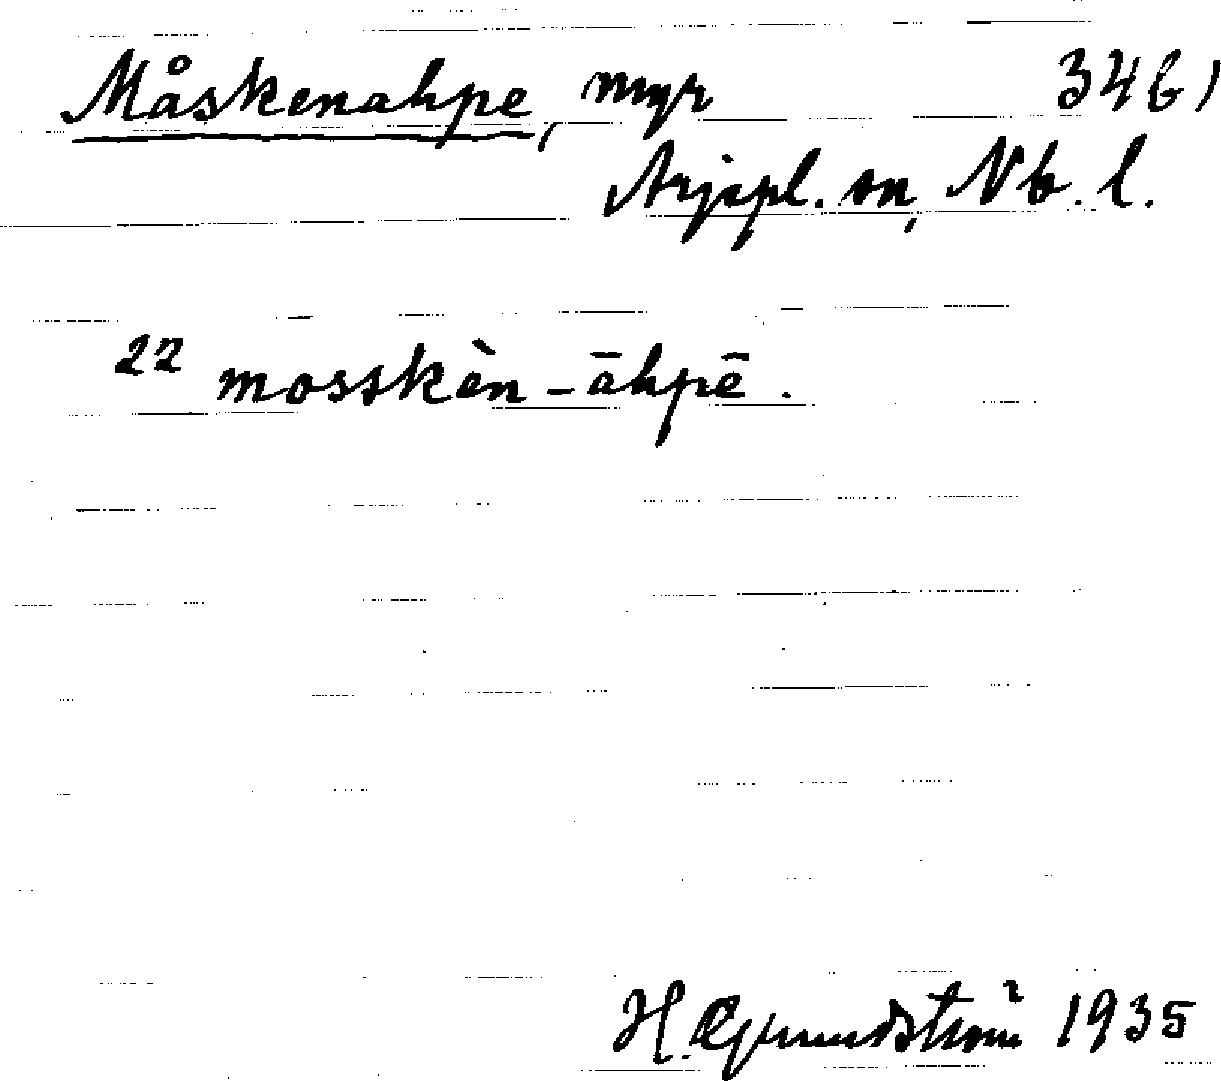 Måskenahpe, myr 3461
Arjepl. sn, Nb. l.
22 mosskèn-āhpē.
H. Grundström 1935